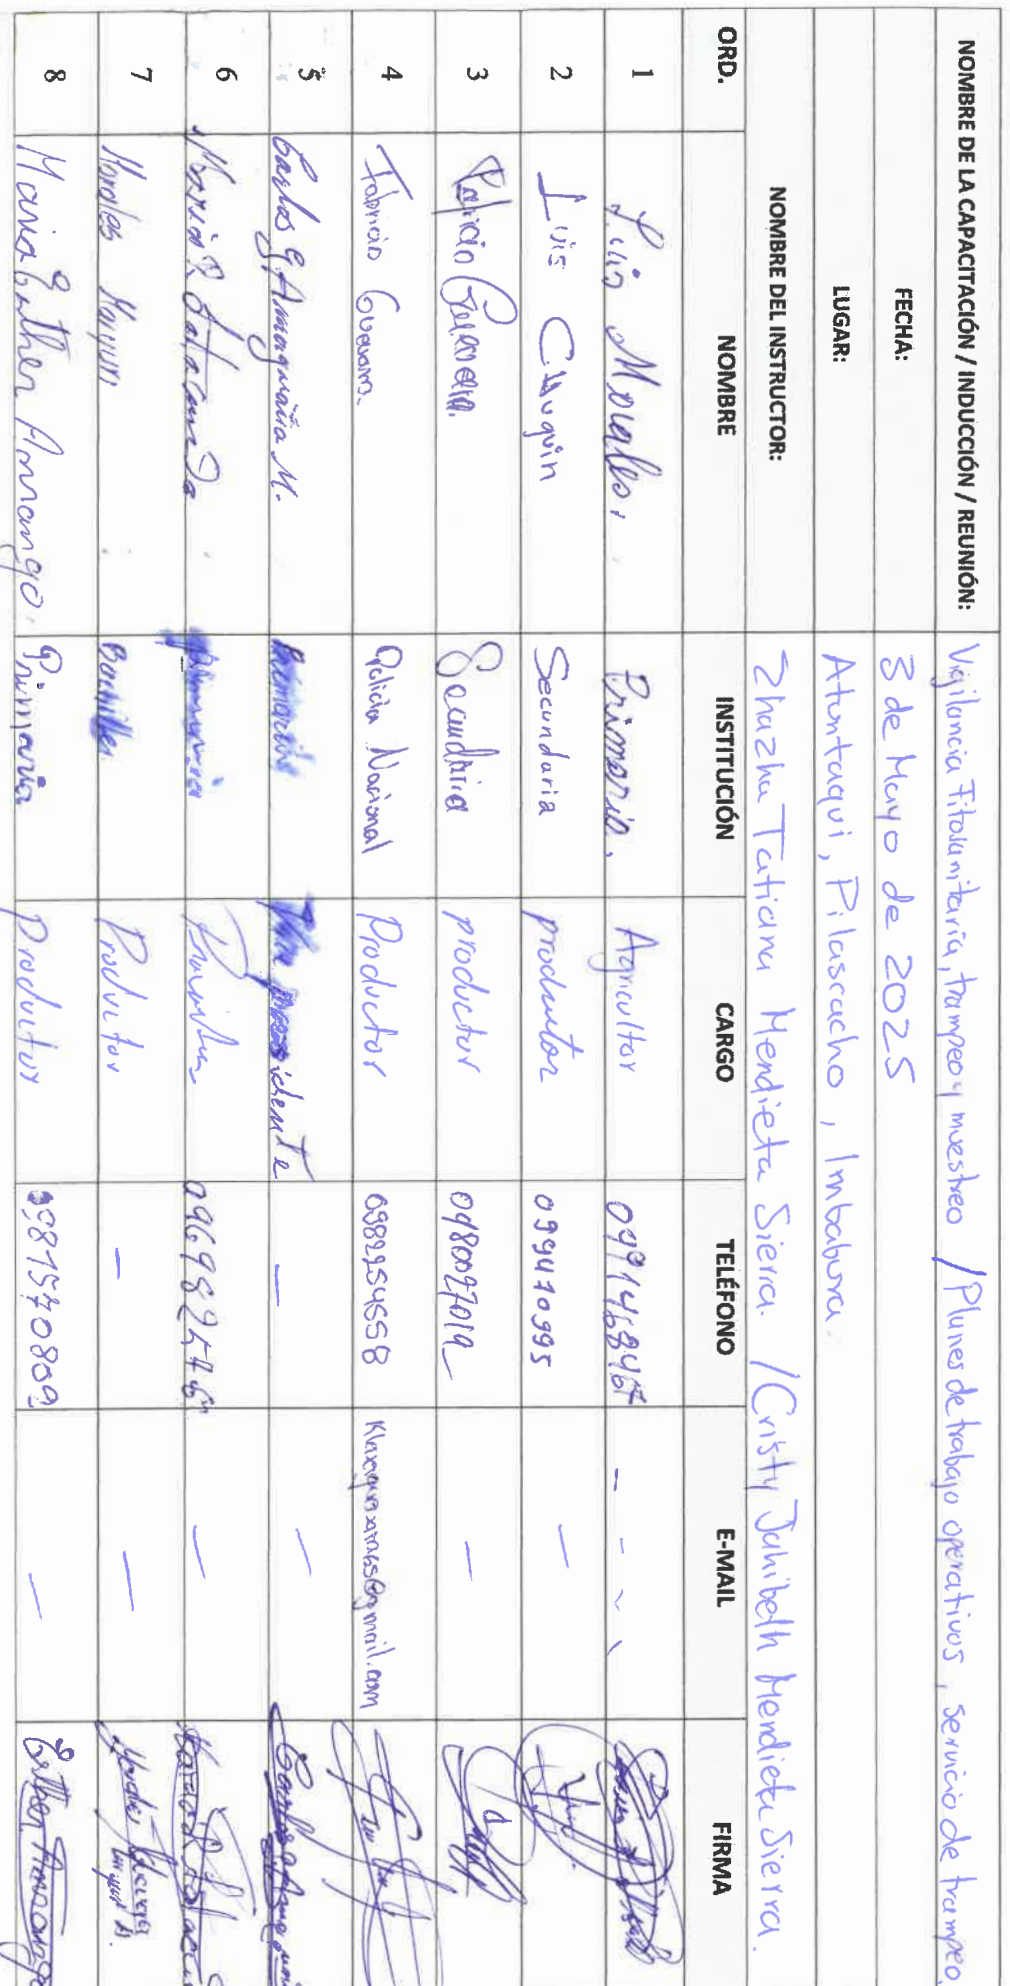 NOMBRE DE LA CAPACITACIÓN / INDUCCIÓN / REUNIÓN: Vigilancia Fitosanitaria, trampeo y muestreo / Planes de trabajo operativos, servicio de trampeo,
FECHA: 3 de Mayo de 2025
LUGAR: Atuntaqui, Pilascacho, Imbabura.
NOMBRE DEL INSTRUCTOR: Zhazha Tatiana Mendieta Sierra. / Cristy Jahibeth Mendieta Sierra.
ORD. NOMBRE INSTITUCIÓN CARGO TELÉFONO E-MAIL FIRMA
1 Luis Morales. Primaria. Agricultor - - - -
2 Luis Chuquin Secundaria productor 099470995 —
3 Patricio Guevara. Secundaria productor 0980027019 —
4 Fabricio Guevara. Policia Nacional Productor 0982954558
5 Carlos G Amaguaña M. Primaria presidente — —
6 María R Primaria —
7 Morales Bachiller Productor — —
8 Maria Esther Anrango. Primaria Productor 0981570809 — Esther Anrango